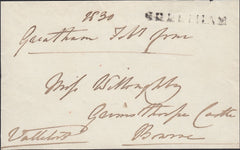 1830
GREETHAM
Greatham Feby four
Miss Willoughby
Grimsthorpe Castle
Bourne